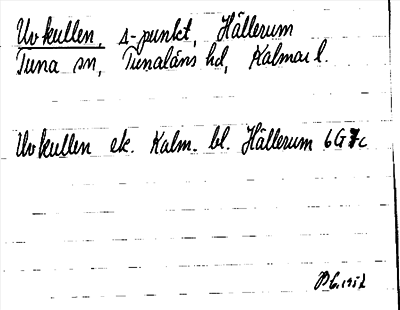 Uvkullen, s-punkt, Hällerum
Tuna sn, Tunaläns hd, Kalmar l.
Uvkullen ek. Kalm. bl. Hällerum 6G7c